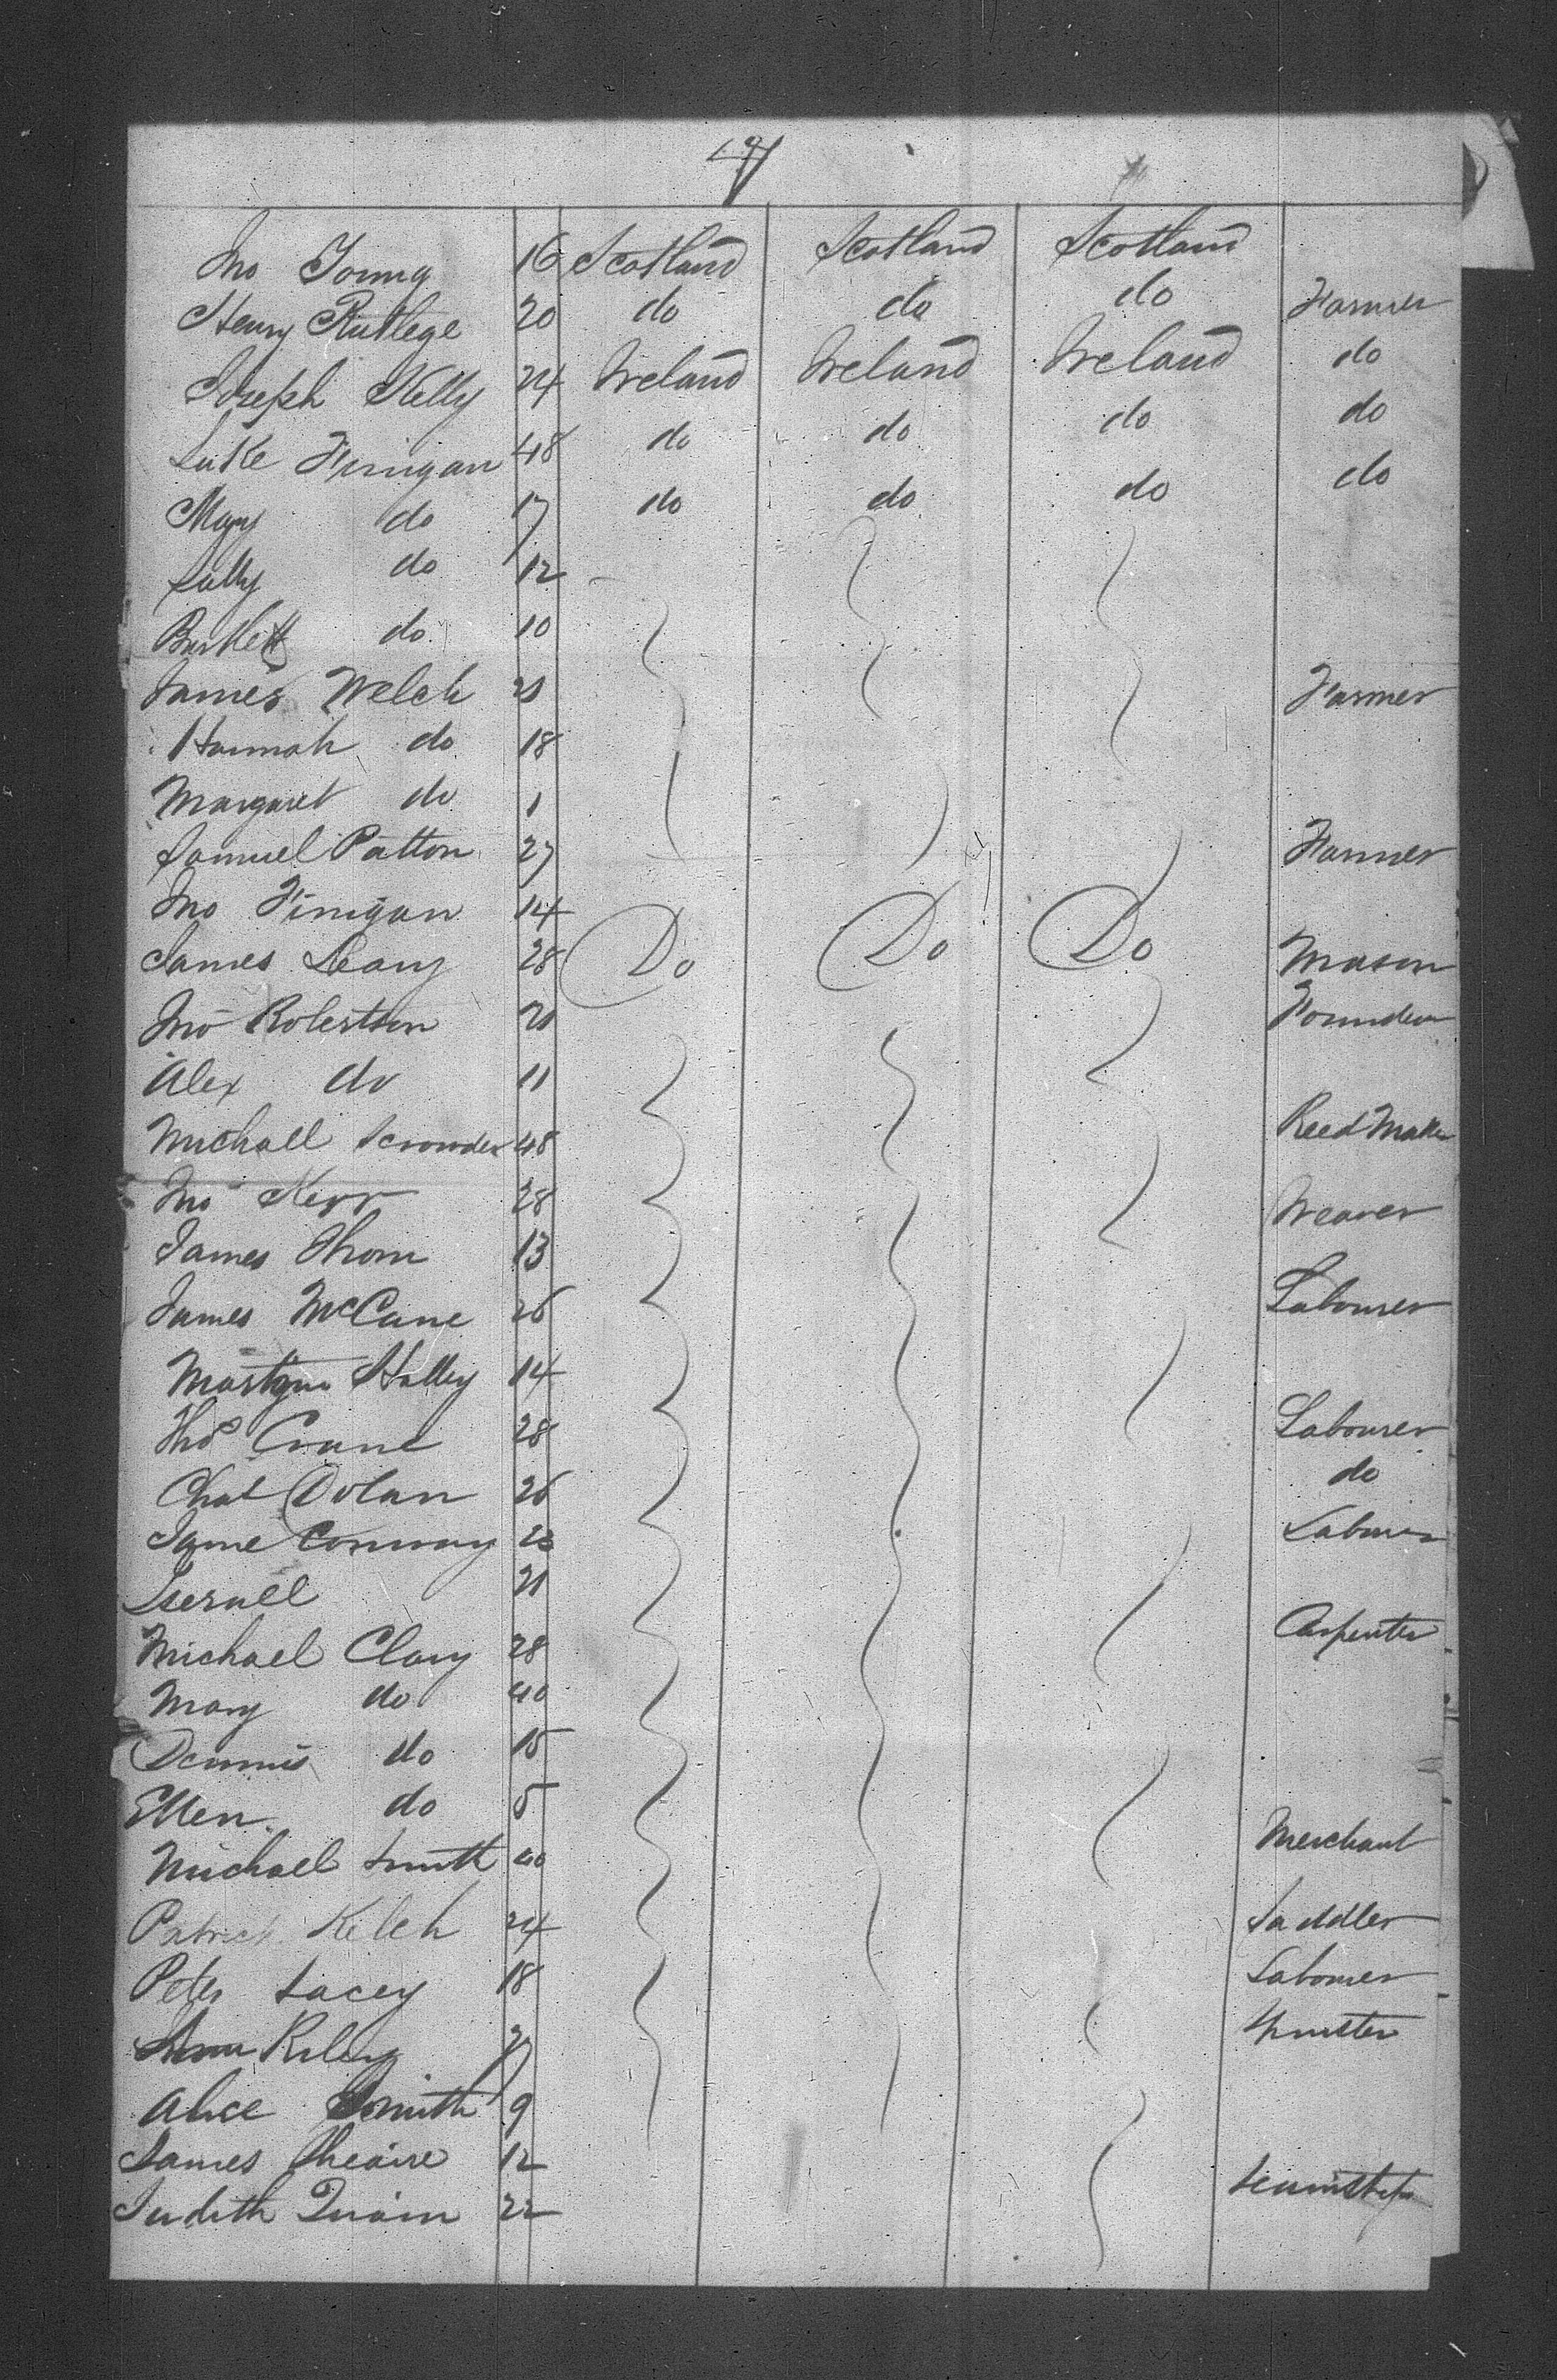 Jno Young 16 Scotland Scotland Scotland
Henry Rutlege 20 do do do Farmer
Joseph Kelly 24 Ireland Ireland Ireland do
Luke Finigan 48 do do do do
Mary do 17 do do do do
Sally do 12
Bartlett do 10
James Welch 21 Farmer
Hannah do 18
Margaret do 1
Samuel Patton 27 Farmer
Jno Finigan 14
James Leary 28 Do Do Do Mason
Jno Robertson 21 Founder
Alex do 11
Michall 48 Reed Maker
Jno Kerr 28 Weaver
James Thom 13
James McCane 26 Labourer
Halley 14
Thos Crane 28 Labourer
Chal Dolan 26 do
Jame Conway 23 Labourer
21
Michael Clary 28 Carpenter
Mary do 40
Dennis do 15
Ellen do 5
Michael Smith 40 Merchant
Patrick Kelch 24 Saddler
Peter Lacey 18 Labourer
Ann Riley 27 Spinster
Alice Smith 9
James 12
Judith Quinn 22